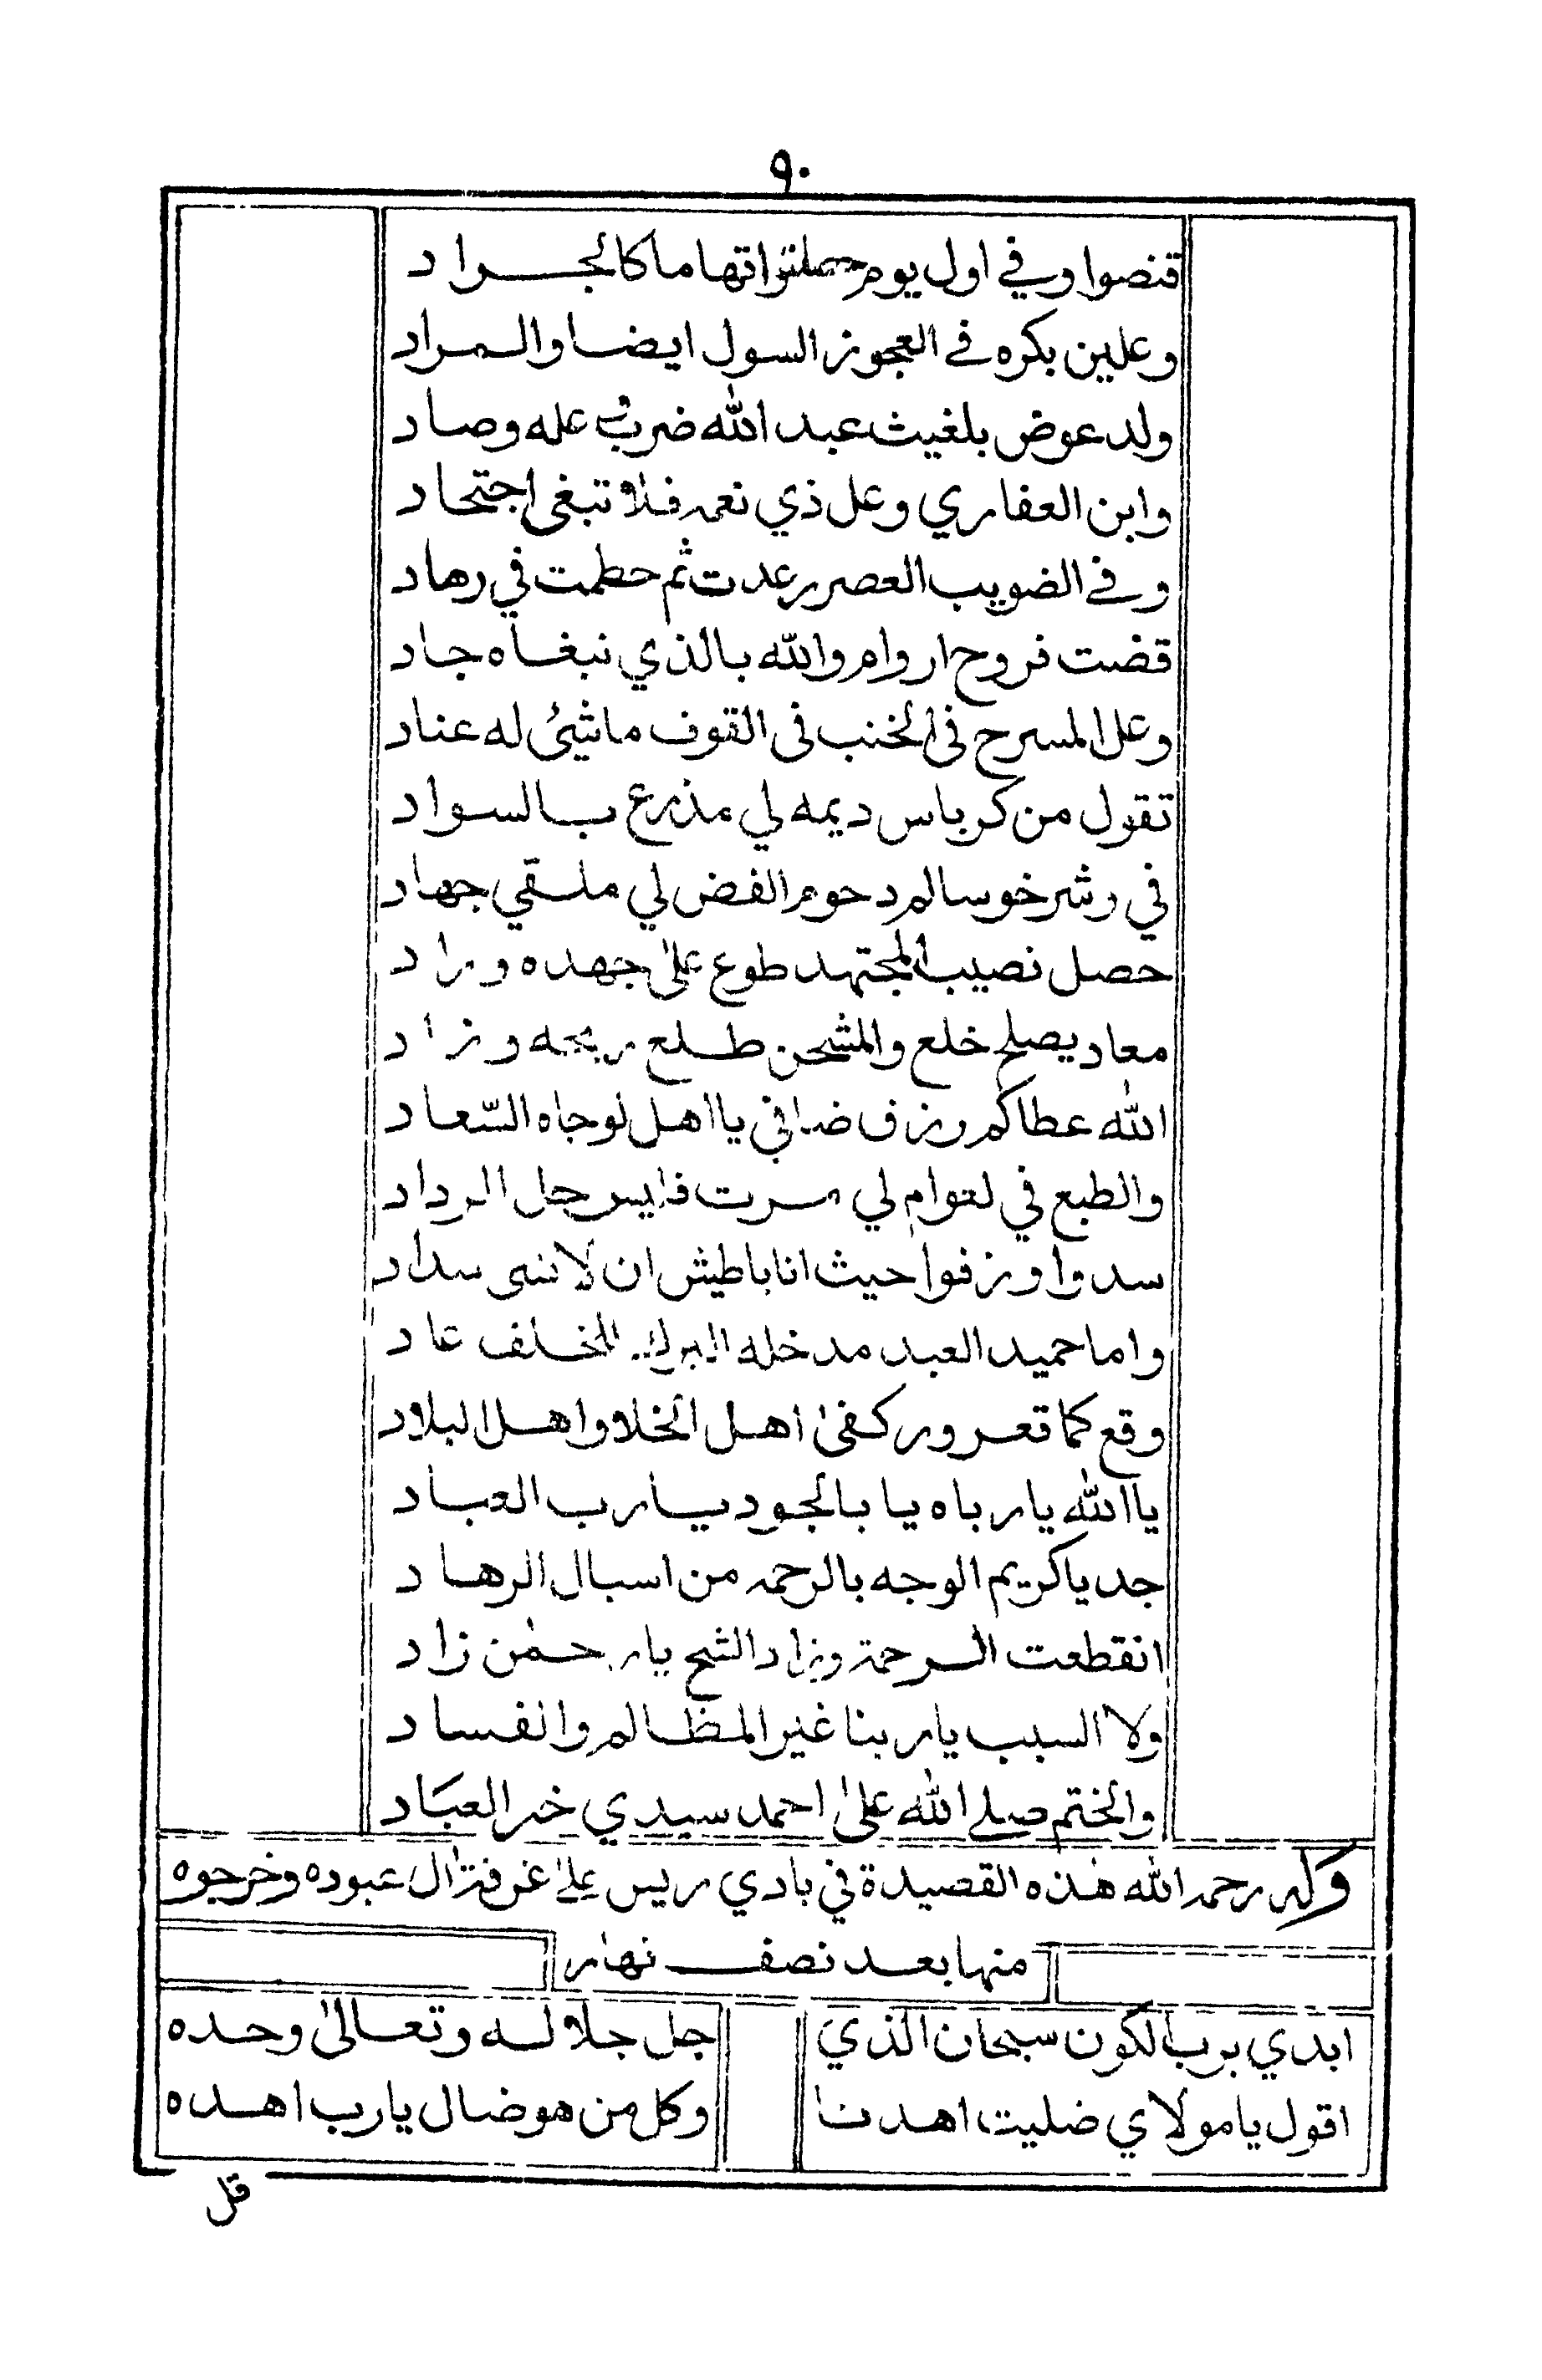 ٩٠
قنصوا وفي اول يوم اتهاما كالجراد
وعلين بكره في العجوز السول ايضا والمراد
ولد عوض بلغيث عبد الله ضرب عله وصاد
وابن العفاري وعل ذي نعمه فلا تبغى اجتحاد
وفي الضويب العصر رعدت ثم حطمت في رهاد
قضت فروح اروام والله بالذي نبغاه جاد
وعل المسرح في الخنب في القوف ماشيئ له عناد
تقول من كرباس ديمه لي مذرع بالسواد
في رشر خوسالم دحوم الفض لي ملقي جهاد
حصل نصيب المجتهد طوع على جهده وراد
معاد يصلح خلع والمشحن طلع ربحه وزاد
الله عطاكم رزف ضافي يا اهل لوجاه السّعاد
والطبع في لقوام لي سرت فايس حل الرداد
سدوا وزفوا حيث انا باطيش ان لا نسى سداد
واما حميد العبد مدخله المخلف عاد
وقع كما قعرور كفى اهل الخلا واهل البلاد
يا الله يارباه يا بالجود يارب العباد
جد ياكريم الوجه بالرحمه من اسبال الرهاد
انقطعت الرحمة وزاد الشح يارحمٰن زاد
ولا السبب ياربنا غير المظالم والفساد
والختم صلى الله على احمد سيدي خير العبَاد
وله رحمه الله هذه القصيدة في بادي ريس على غرفة ال عبوده وخرجوه
منها بعد نصف نهار
ابدي برب الكون سبحان الذي جل جلاله وتعالى وحده
اقول يا مولاي ضليت اهدنا وكل من هو ضال يارب اهده
قل